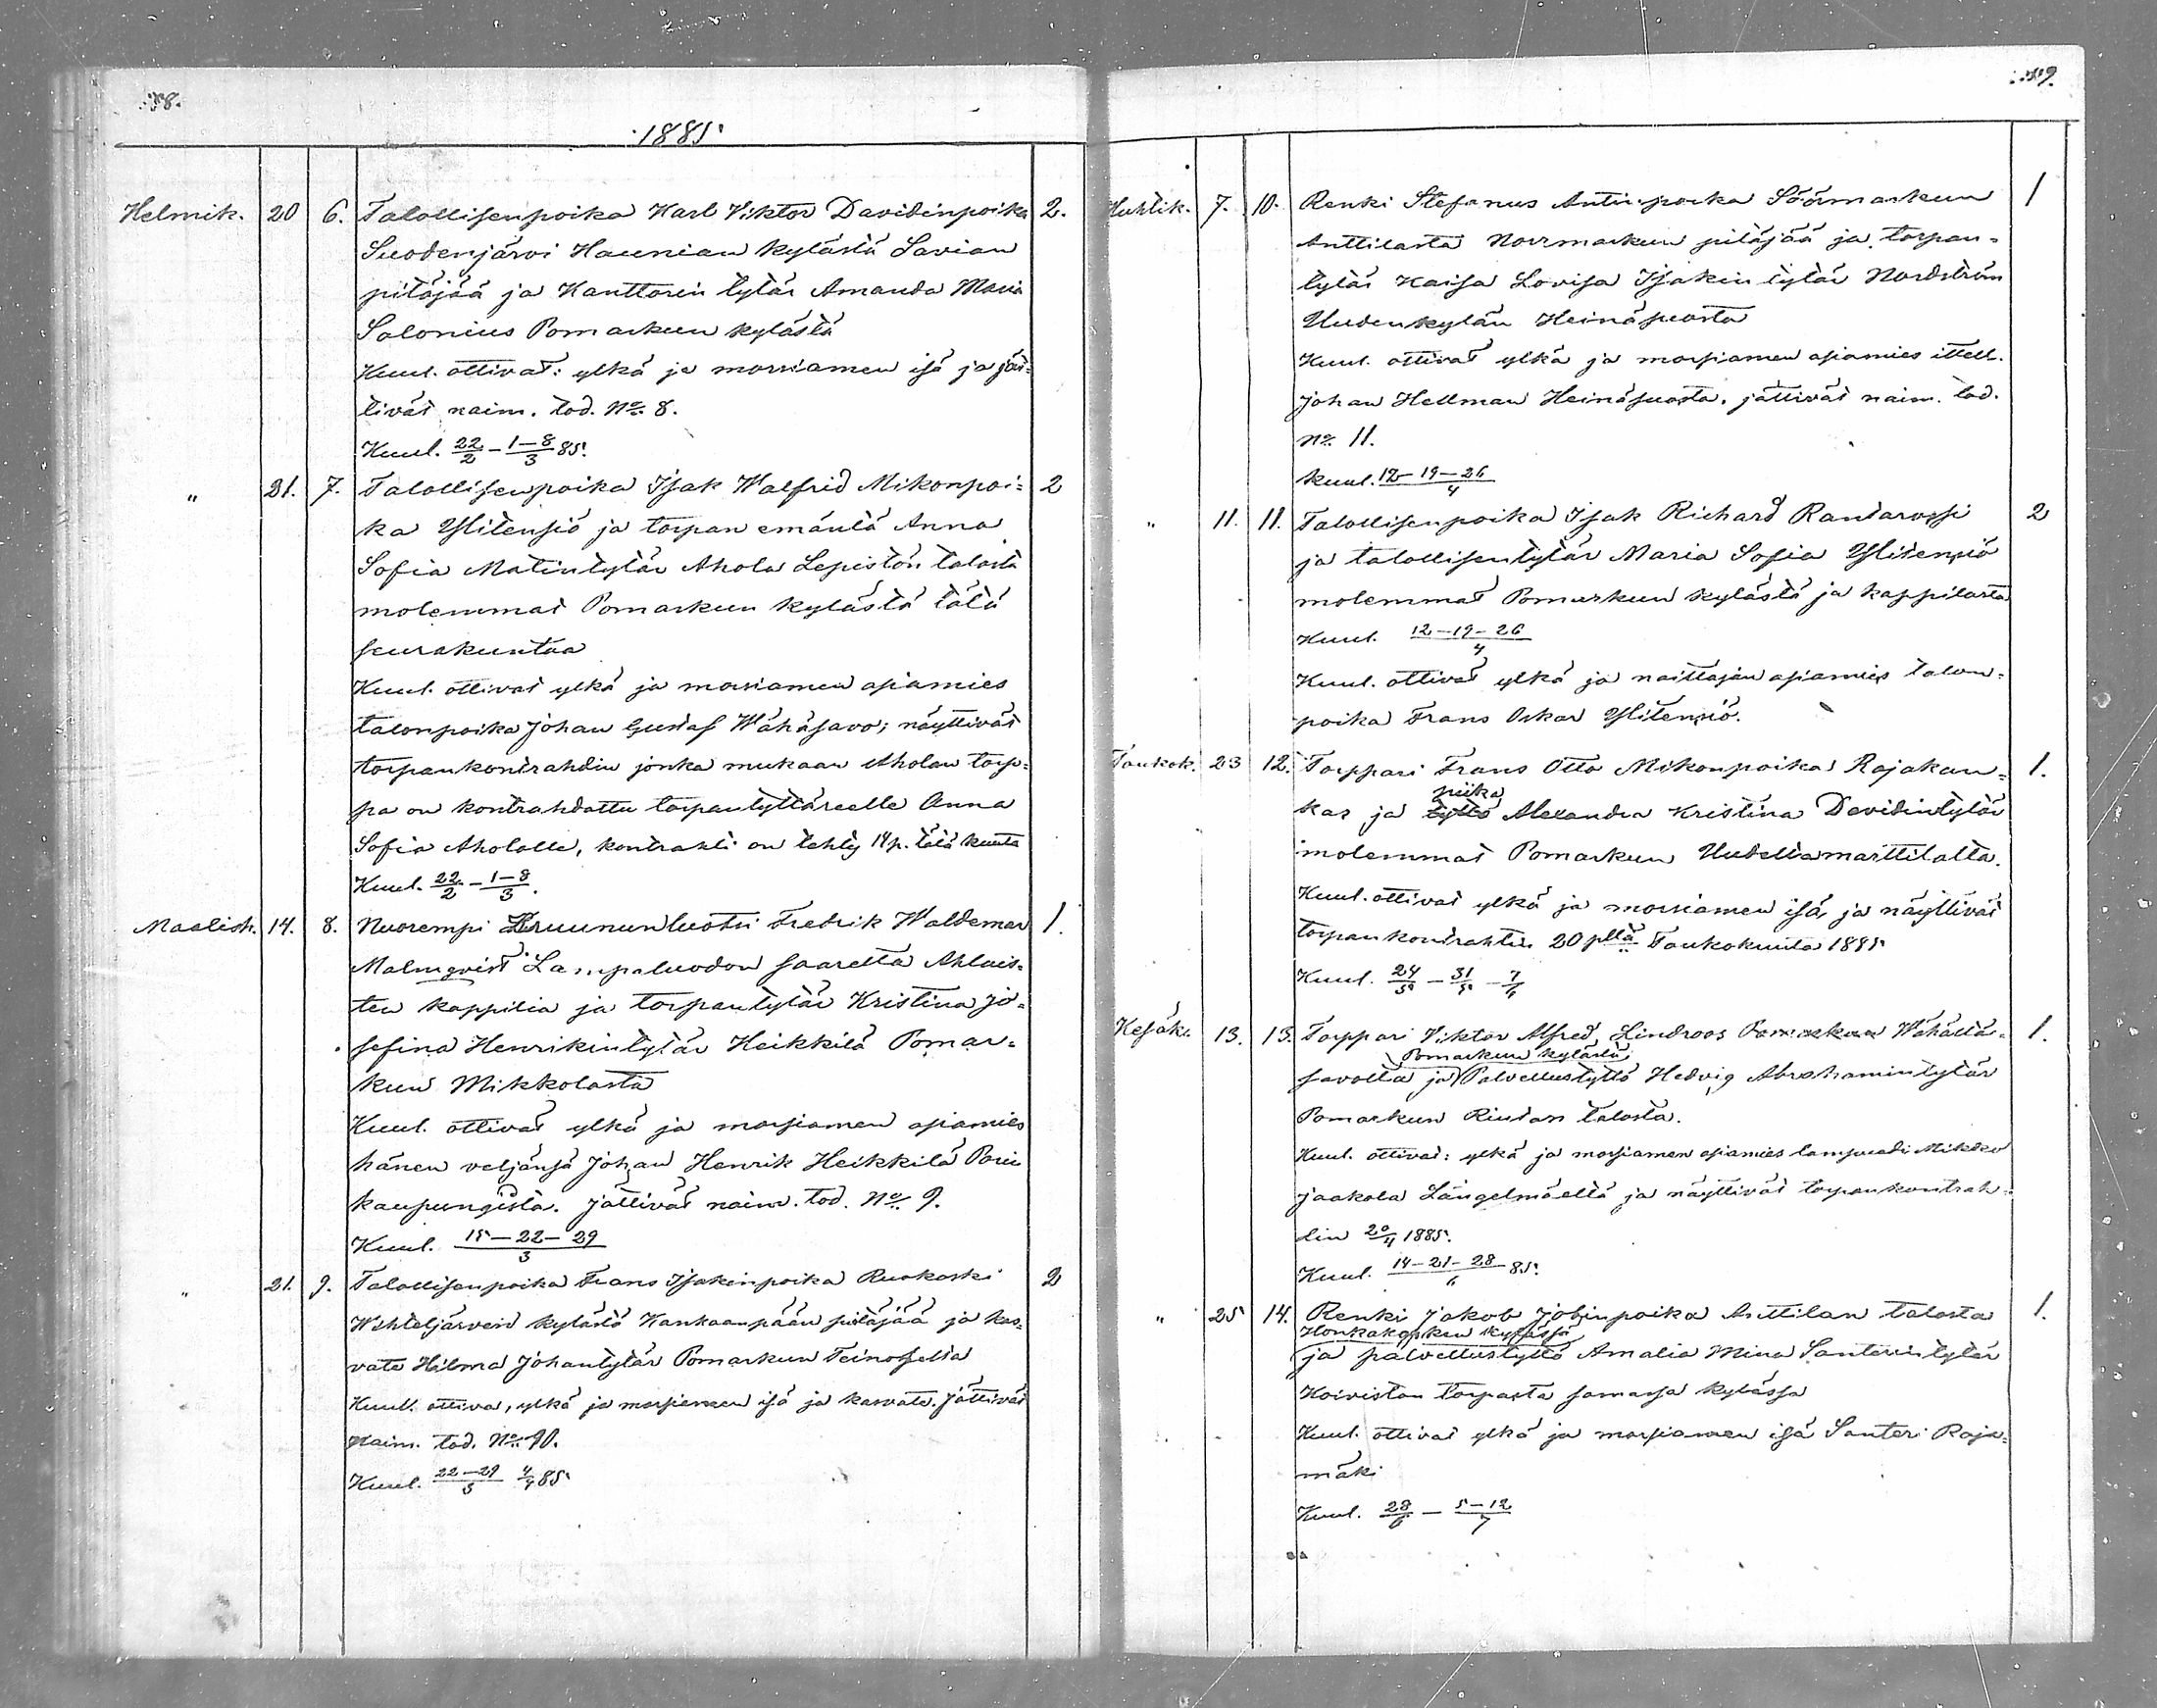 1885.
Helmik. 20 6. Talollisenpoika Karl Viktor Davidinpoika 2.
Suodenjärvi Haunian kylästä Lavian
pitäjää ja Kanttorin tytär Amanda Maria
Salonius Pomarkun kylästä
Kuul. ottivat: ylkä ja morsiamen isä ja jät-
tivät naim. tod. No. 8.
Kuul. 22/2 - 1-8/3 85.
" 21. 7. Talollisenpoika Isak Walfrid Mikonpoi- 2
ka Ylitensiö ja torpan emäntä Anna
Sofia Matintytär Ahola Lepistön talosta
molemmat Pomarkun kylästä tätä
seurakuntaa
Kuul. ottivat ylkä ja morsiamen asiamies
talonpoika Johan Gustaf Wähäsavo; näyttivät
torpankontrahdin jonka mukaan Aholan torp-
pa on kontrahdattu torpantyttäreelle Anna
Sofia Aholalle, kontrahti on tehty 18 p. tätä kuuta
Kuul. 22/2 - 1-8/3.
Maalisk. 14. 8. Nuorempi Kruununluotsi Fredrik Waldemar 1.
Malmqvist Lampaluodon saarelta Ahlais-
ten kappilia ja torpantytär Kristina Jo-
sefina Henrikintytär Heikkilä Pomar-
kun Mikkolasta
Kuul. ottivat ylkä ja morsiamen asiamies
hänen veljänsä Johan Henrik Heikkilä Porin
kaupungista. Jättivät naim. tod. No. 9.
Kuul. 15-22-29/3
" 21. 9. Talollisenpoika Frans Isakinpoika Ruokoski 2
Wihteljärven kylästä Kankaanpään pitäjää ja kas-
vate Hilma Johantytär Pomarkun
Kuul. ottiva, ylkä ja morsiamen isä ja kasvate. Jättivät
Naim. tod. No. 10.
Kuul. 22-29/3 4/4 85
Huhtik. 7. 10. Renki Stefanus Antinpoika Söörmarkun 1
Anttilasta Norrmarkun pitäjää ja torpan-
tytär Kaisa Lovisa Isakin tytär Nordström
Uudenkylän Heinäsuosta
Kuul. ottivat ylkä ja morsiamen asiamies itsell.
Johan Hellman Heinäsuosta. jättivät naim. tod.
No. 11.
Kuul. 12-19-26/4
" 11. 11. Talollisenpoika Isak Richard Rantarossi 2
ja talollisentytär Maria Sofia Ylitensiö
molemmat Pomarkun kylästä ja kappilasta
Kuul. 12-19-26/4
Kuul. ottivat ylkä ja naittajan asiamies talon-
poika Frans Oskar Ylitensiö.
Toukok. 23 12. Torppari Frans Otto Mikonpoika Rajakan- 1.
piika
kas ja tyttö Alexandra Kristina Davidintytär
molemmat Pomarkun Uudeltamarttilalta.
Kuul. ottivat ylkä ja morsiamen isä, ja näyttivät
torpankontrahtin 20 pltä Toukokuuta 1885
Kuul. 24/5 - 31/5 - 7/6
Kesäk. 13. 13. Torppari Viktor Alfred Lindroos Pomarkun Wähältä- 1.
Pomarkun kylästä
savolta ja Palvellustyttö Hedvig Abrahamintytär
Pomarkun Riutan talosta.
Kuul. ottivat: ylkä ja morsiamen asiamies lampuodi Mikko
Jaakola Längelmäeltä ja näyttivät torpankontrah-
tin 20/4 1885.
Kuul. 14-21-28/6 85.
" 25 14. Renki Jakob Jobinpoika Anttilan talosta 1.
Honkakosken kylässä
ja palvellustyttö Amalia Mina Santerintytär
Koiviston torpasta samassa kylässä
Kuul. ottivat ylkä ja morsiamen isä Santeri Raja-
mäki
Kuul. 28/6 - 5-12/7